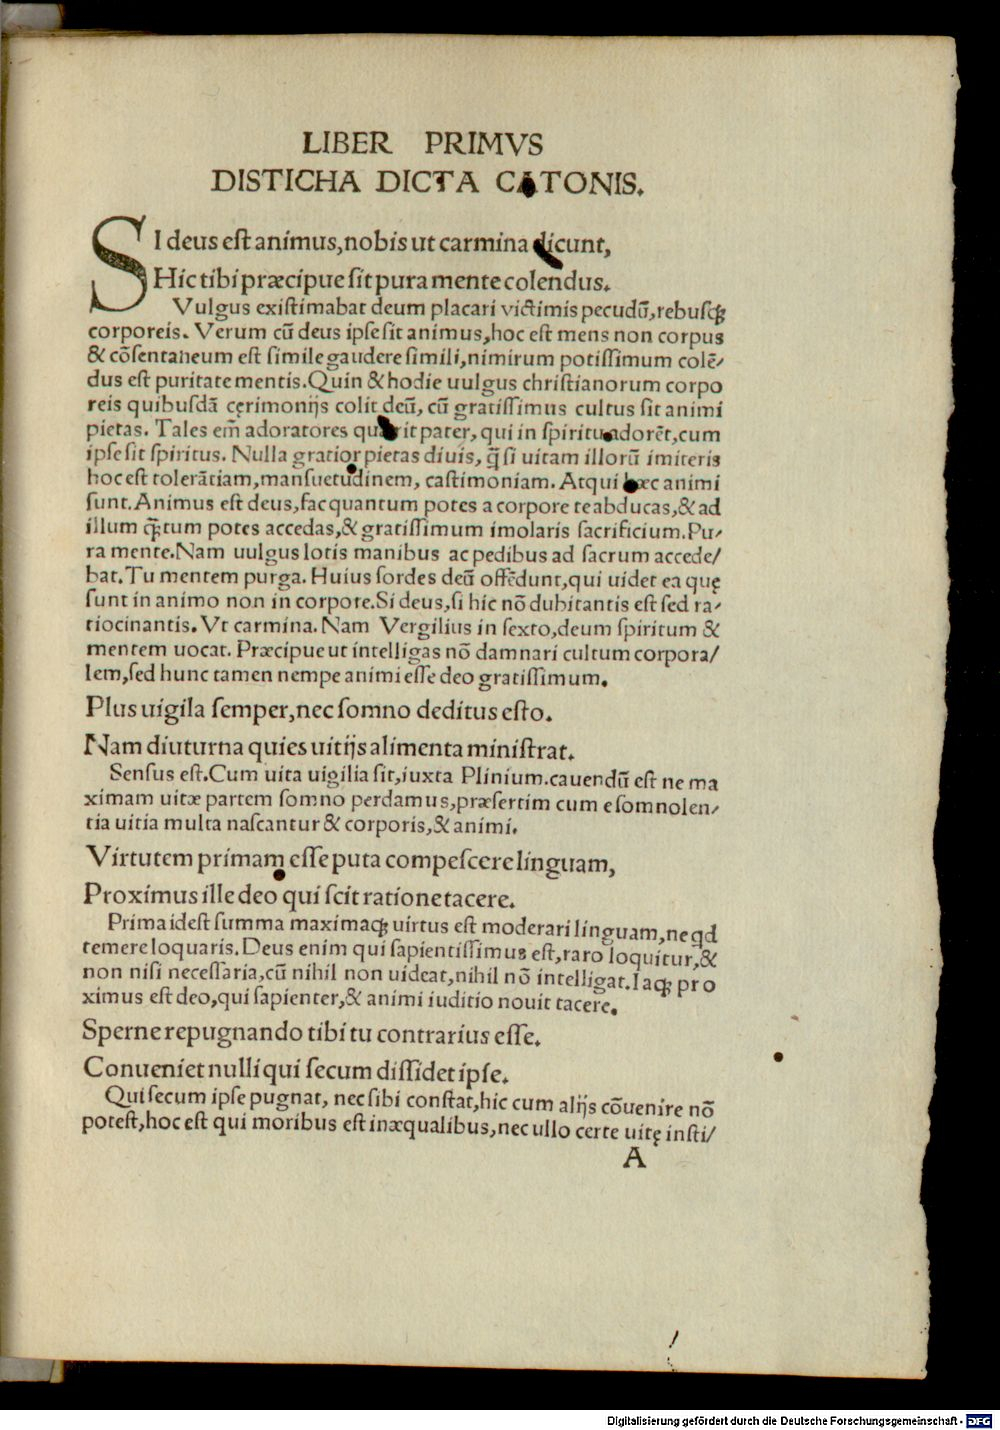 LIBER PRIMVS
DISTICHA DICTA CATONIS.
SI deus eſt animus,nobis ut carmina dicunt,
Hic tibi præcipue ſit pura mente colendus.
Vulgus exiſtimabat deum placari victimis pecudū,rebuſqꝫ
corporeis. Verum cū deus ipſe ſit animus,hoc eſt mens non corpus
& cōſentaneum eſt ſimile gaudere ſimili,nimirum potiſſimum colē/
dus eſt puritate mentis.Quin & hodie uulgus chriſtianorum corpo
reis quibuſdā cęrimonijs colit deū, cū gratiſſimus cultus ſit animi
pietas. Tales em̄ adoratores quærit pater, qui in ſpiritu adorēt,cum
ipſe ſit ſpiritus. Nulla gratior pietas diuis, q̄ ſi uitam illorū imiteris
hoc eſt tolerātiam,manſuetudinem, caſtimoniam. Atqui hæc animi
ſunt.Animus eſt deus,fac quantum potes a corpore te abducas,&ad
illum qꝫ̄tum potes accedas,& gratiſſimum imolaris ſacrificium.Pu/
ra mente.Nam uulgus lotis manibus ac pedibus ad ſacrum accede/
bat.Tu mentem purga. Huius ſordes deū offēdunt,qui uidet ea quę
ſunt in animo non in corpore.Si deus,ſi hic nō dubitantis eſt ſed ra/
tiocinantis.Vt carmina.Nam Vergilius in ſexto,deum ſpiritum &
mentem uocat. Præcipue ut intelligas nō damnari cultum corpora/
lem,ſed hunc tamen nempe animi eſſe deo gratiſſimum.
Plus uigila ſemper,nec ſomno deditus eſto.
Nam diuturna quies uitijs alimenta miniſtrat.
Senſus eſt.Cum uita uigilia ſit,iuxta Plinium.cauendū eſt ne ma
ximam uitæ partem ſomno perdamus,præſertim cum e ſomnolen/
tia uitia multa naſcantur & corporis,& animi.
Virtutem primam eſſe puta compeſcere linguam,
Proximus ille deo qui ſcit ratione tacere.
Prima ideſt ſumma maximaqꝫ uirtus eſt moderari linguam,ne qd
temere loquaris.Deus enim qui ſapientiſſimus eſt,raro loquitur,&
non niſi neceſſaria,cū nihil non uideat,nihil nō intelligat.Iaqꝫ pro
ximus eſt deo,qui ſapienter,& animi iuditio nouit tacere.
Sperne repugnando tibi tu contrarius eſſe.
Conueniet nulli qui ſecum diſſidet ipſe.
Qui ſecum ipſe pugnat, nec ſibi conſtat,hic cum alijs cōuenire nō
poteſt,hoc eſt qui moribus eſt inæqualibus,nec ullo certe uitę inſti/
A
Digitalisierung gefördert durch die Deutsche Forschungsgemeinschaft - DFG